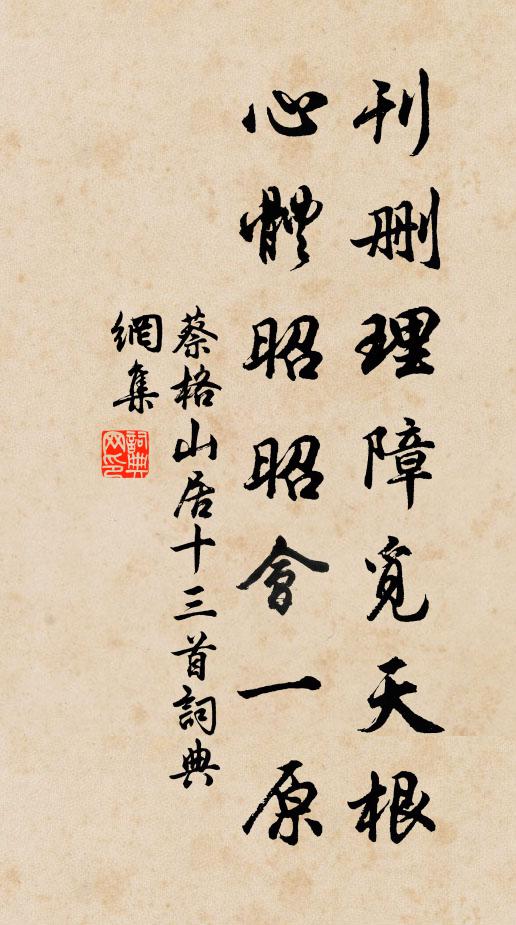 刊删理障覓天根
心體昭昭會一原
蔡格山居十三首詞典
網集
詞典
网印